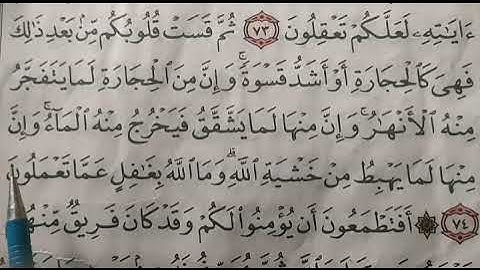 ءَايَٰتِهِۦ لَعَلَّكُمْ تَعْقِلُونَ ٧٣ ثُمَّ قَسَتْ قُلُوبُكُم مِّنۢ بَعْدِ ذَٰلِكَ
فَهِىَ كَٱلْحِجَارَةِ أَوْ أَشَدُّ قَسْوَةً ۚ وَإِنَّ مِنَ ٱلْحِجَارَةِ لَمَا يَتَفَجَّرُ
مِنْهُ ٱلْأَنْهَٰرُ ۚ وَإِنَّ مِنْهَا لَمَا يَشَّقَّقُ فَيَخْرُجُ مِنْهُ ٱلْمَآءُ ۚ وَإِنَّ
مِنْهَا لَمَا يَهْبِطُ مِنْ خَشْيَةِ ٱللَّهِ ۗ وَمَا ٱللَّهُ بِغَٰفِلٍ عَمَّا تَعْمَلُونَ
٧٤ ۞ أَفَتَطْمَعُونَ أَن يُؤْمِنُوا۟ لَكُمْ وَقَدْ كَانَ فَرِيقٌ مِّنْهُمْ